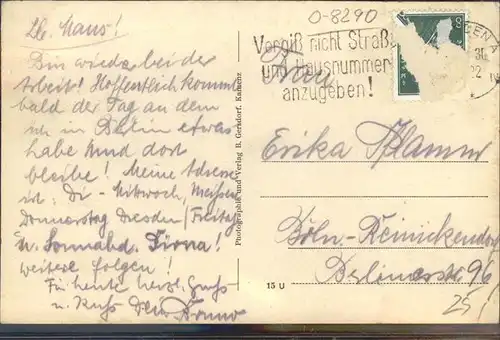 O-8290
Lb. Maus!
Bin wieder bei der
Arbeit! Hoffentlich kommt
bald der Tag an dem
ich in Berlin etwas
habe und dort
bleibe! Meine Adresse
ist: Di - Mittwoch, Meißen
Donnerstag Dresden/Freitag
u. Sonnabd. Pirna!
weitere folgen!
Für heute herzl. Gruß
u. Kuß Dein Bruno
Photographie und Verlag B. Gersdorf, Kamenz
Vergiß nicht Straße
und Hausnummer
anzugeben!
Frau
Erika Pflamm
Bln.-Reinickendorf
Berlinerstr. 96
25!
15 U